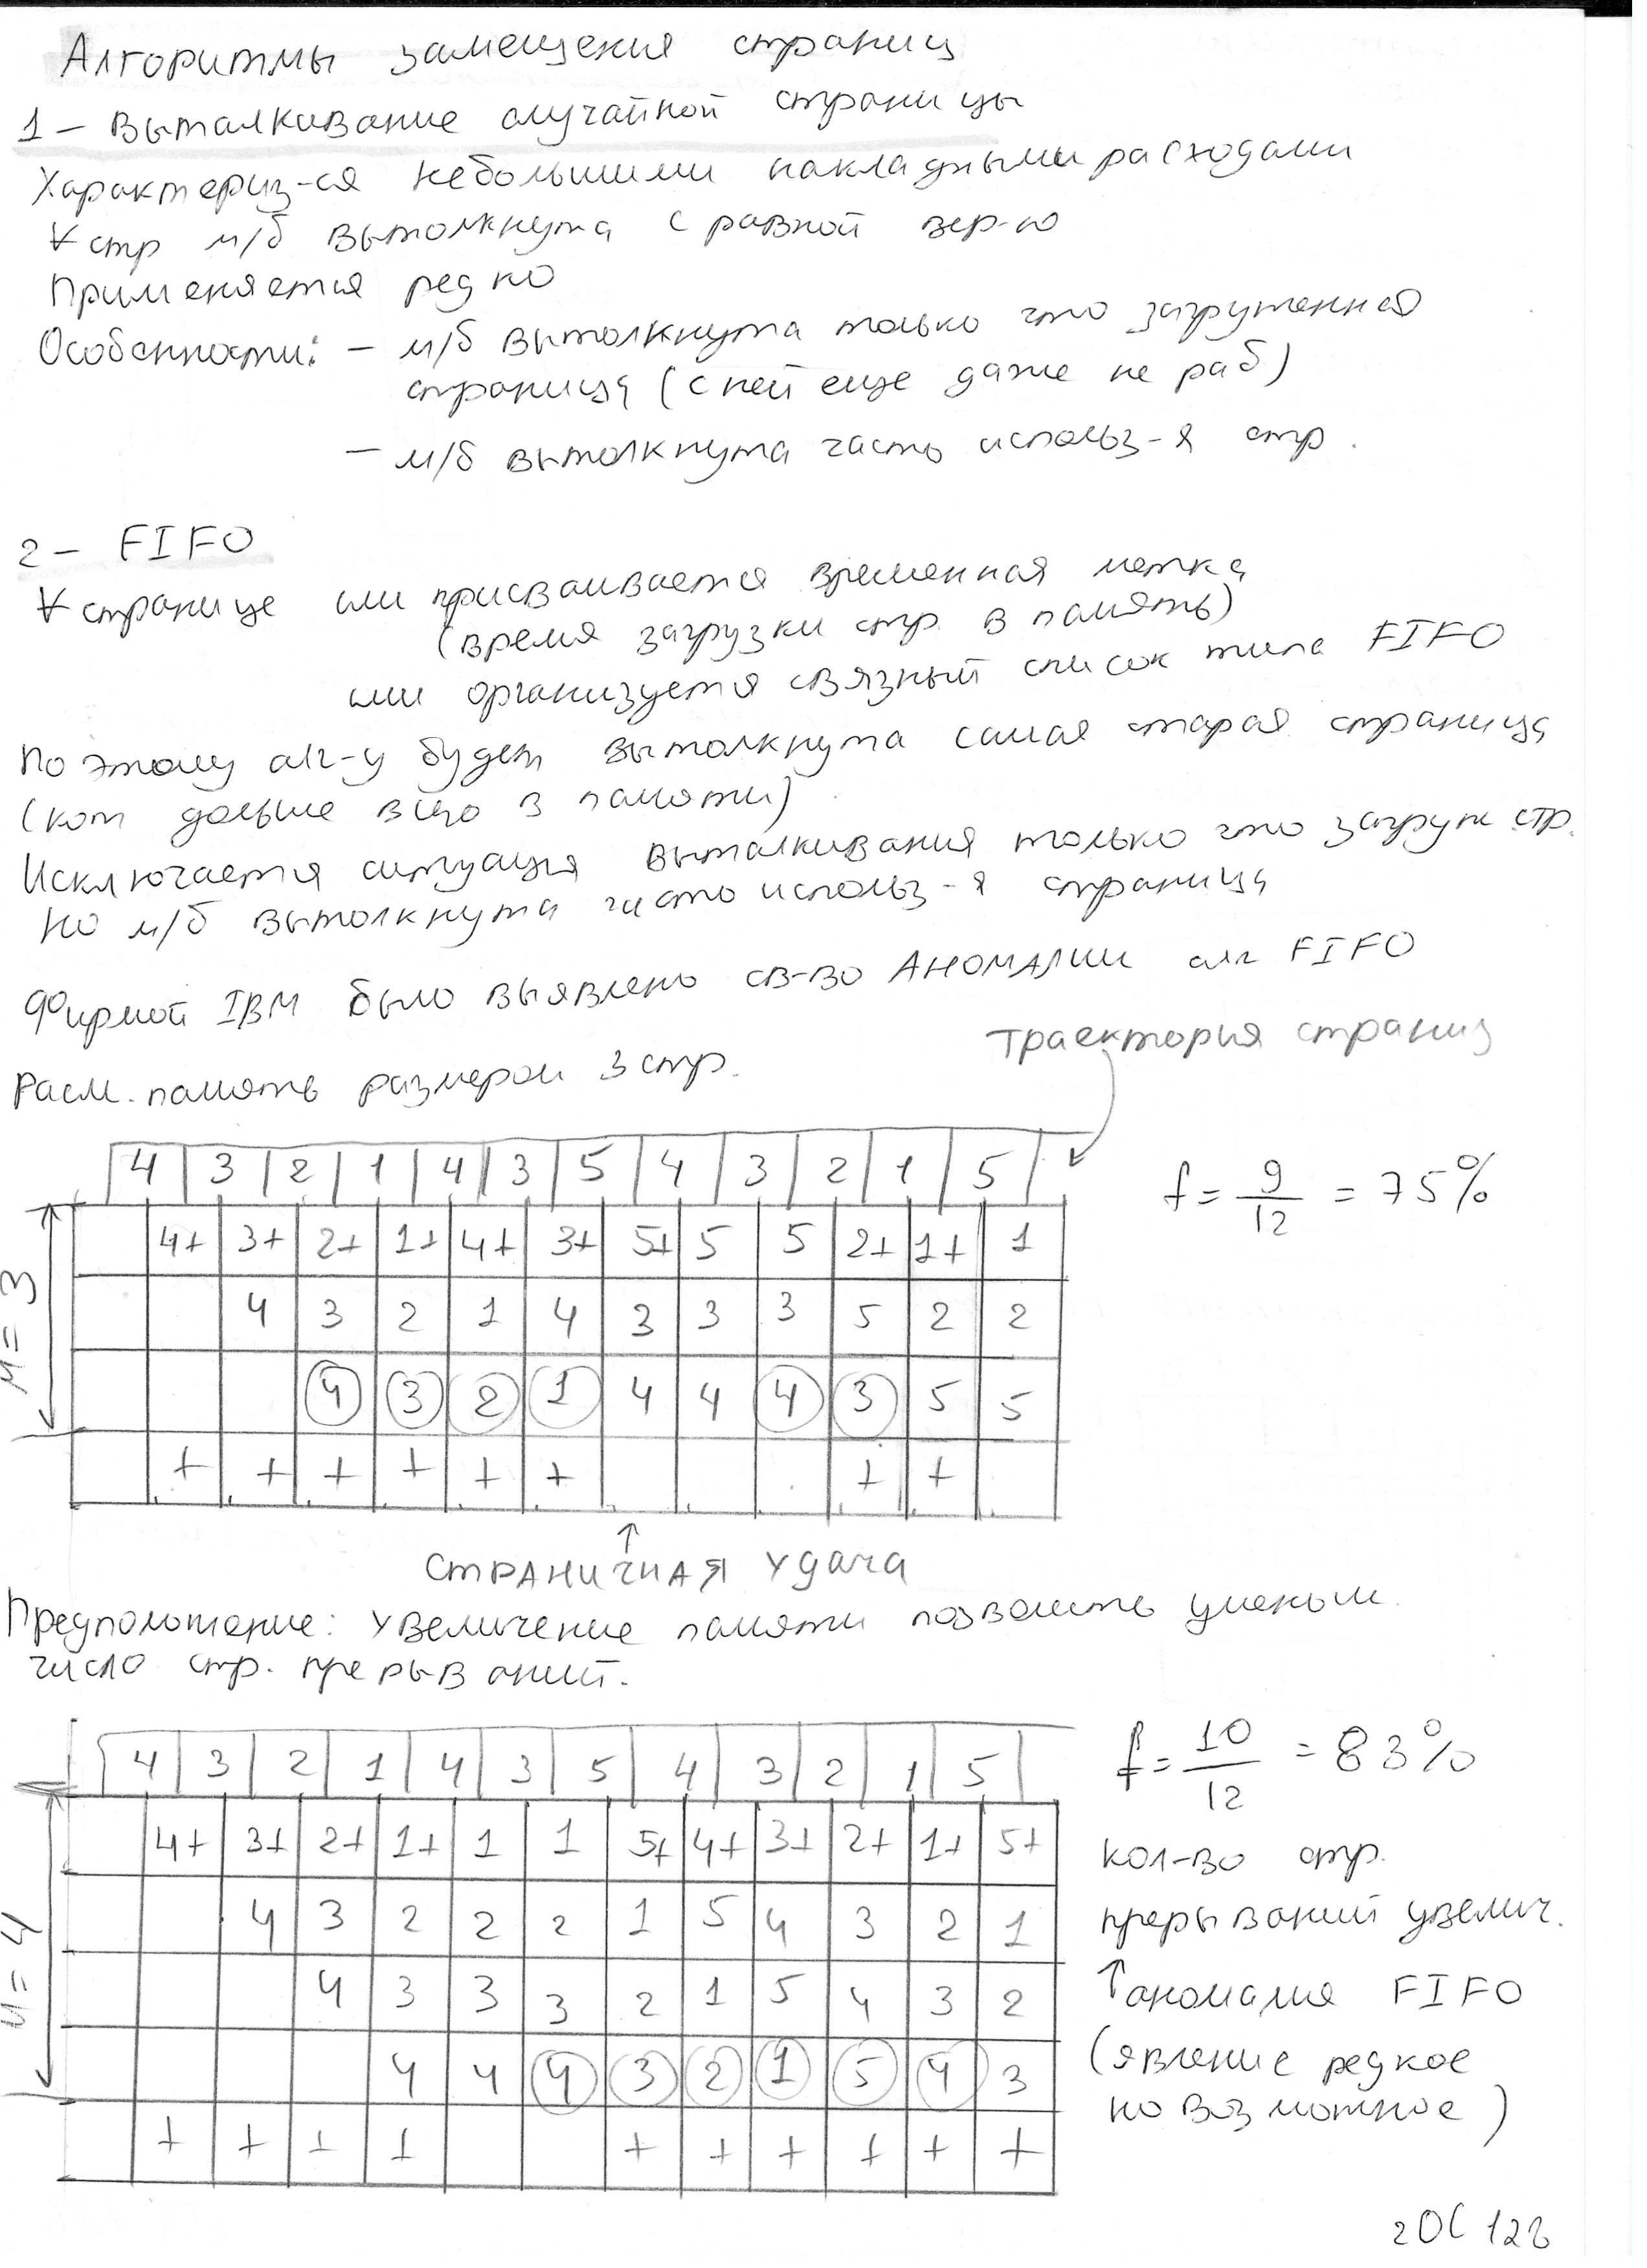 Алгоритмы замещения страниц
1 – Выталкивание случайной страницы
Характериз-ся небольшими накладными расходами
∀ стр м/б вытолкнута с равной вер-ю
Применяется редко
Особенности: – м/б вытолкнута только что загруженная
страница (с ней еще даже не раб)
– м/б вытолкнута часто использ-я стр.
2 – FIFO
∀ странице или присваивается временная метка
(время загрузки стр. в память)
или организуется связный список типа FIFO
По этому алг-у будет вытолкнута самая старая страница
(кот дольше всго в памяти)
Исключается ситуация выталкивания только что загруж стр.
Но м/б вытолкнута часто использ-я страница
Фирмой IBM было выявлено св-во АНОМАЛИИ алг FIFO
траектория страниц
Расм. память размером 3 стр.
4 3 2 1 4 3 5 4 3 2 1 5
f = 9/12 = 75%
4+ 3+ 2+ 1+ 4+ 3+ 5+ 5 5 2+ 1+ 1
M = 3
4 3 2 1 4 3 3 3 5 2 2
4 3 2 1 4 4 4 3 5 5
+ + + + + + + +
↑
СТРАНИЧНАЯ удача
Предположение: увеличение памяти позволить уменьш.
число стр. прерываний.
4 3 2 1 4 3 5 4 3 2 1 5
f = 10/12 = 83%
4+ 3+ 2+ 1+ 1 1 5+ 4+ 3+ 2+ 1+ 5+
кол-во стр.
M = 4
4 3 2 2 2 1 5 4 3 2 1
прерываний увелич.
4 3 3 3 2 1 5 4 3 2
↑ аномалия FIFO
4 4 4 3 2 1 5 4 3
(явление редкое
но возможное)
+ + + + + + + + + +
2ОС 12в